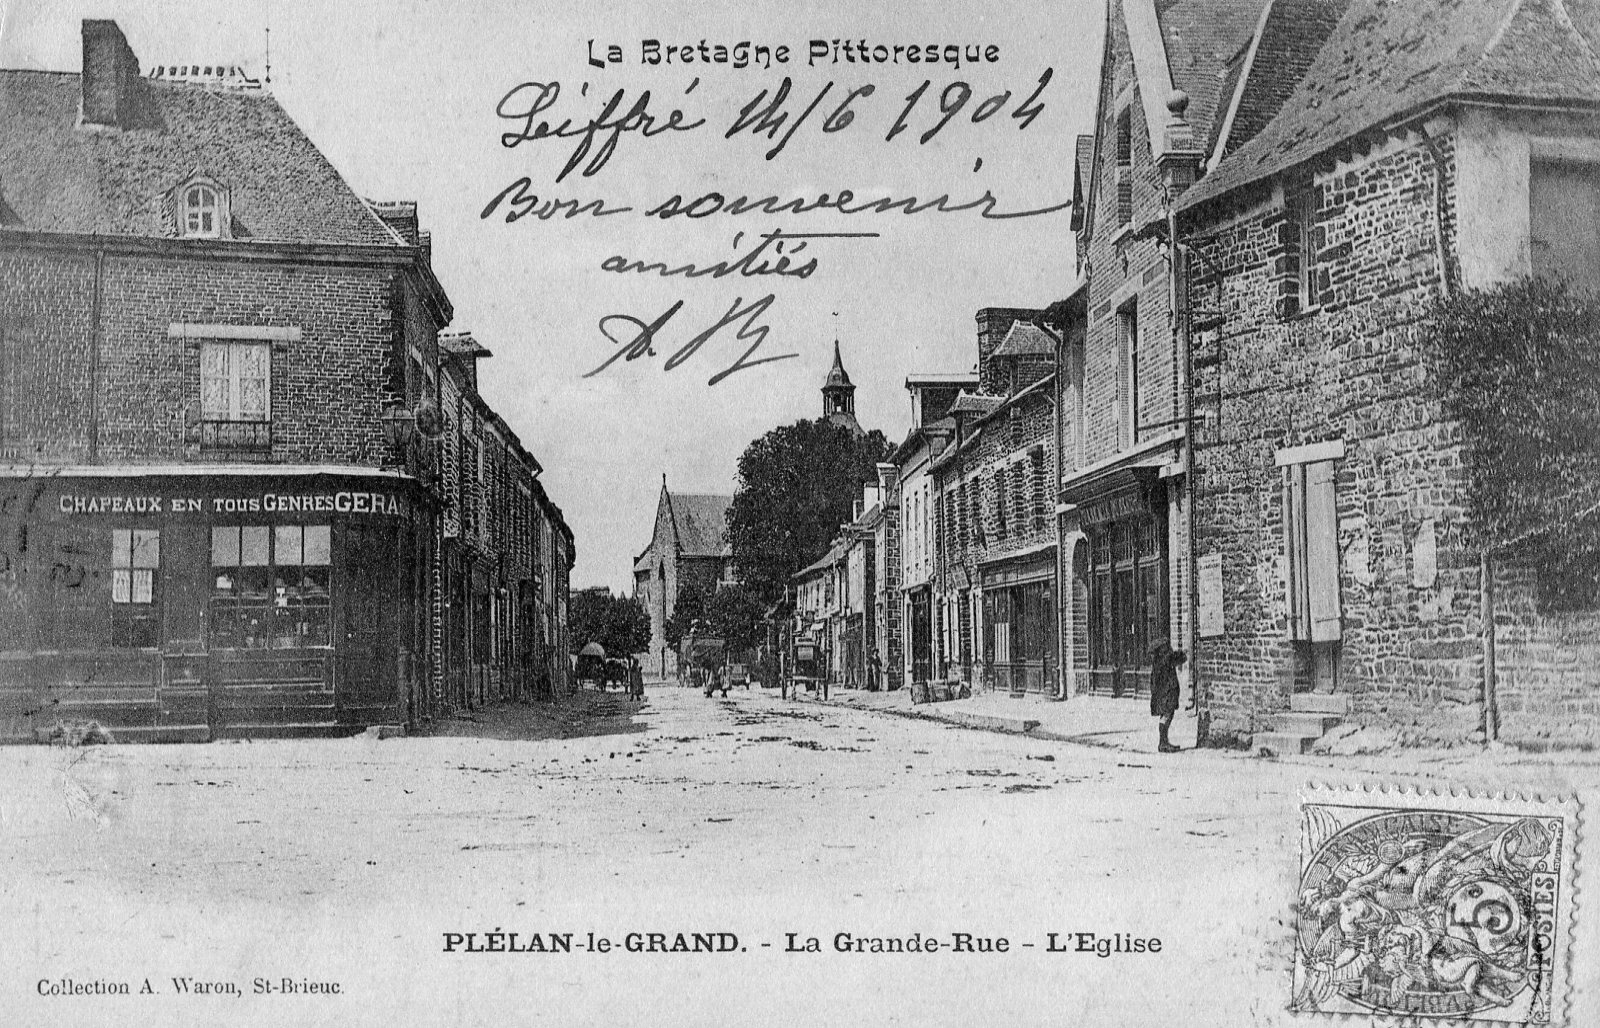 La Bretagne Pittoresque
Liffré 14/6 1904
Bon souvenir
amitiés
CHAPEAUX EN TOUS GENRES GERA
RÉPUBLIQUE FRANÇAISE
5
POSTES
PLÉLAN-le-GRAND. - La Grande-Rue - L'Eglise
Collection A. Waron, St-Brieuc.